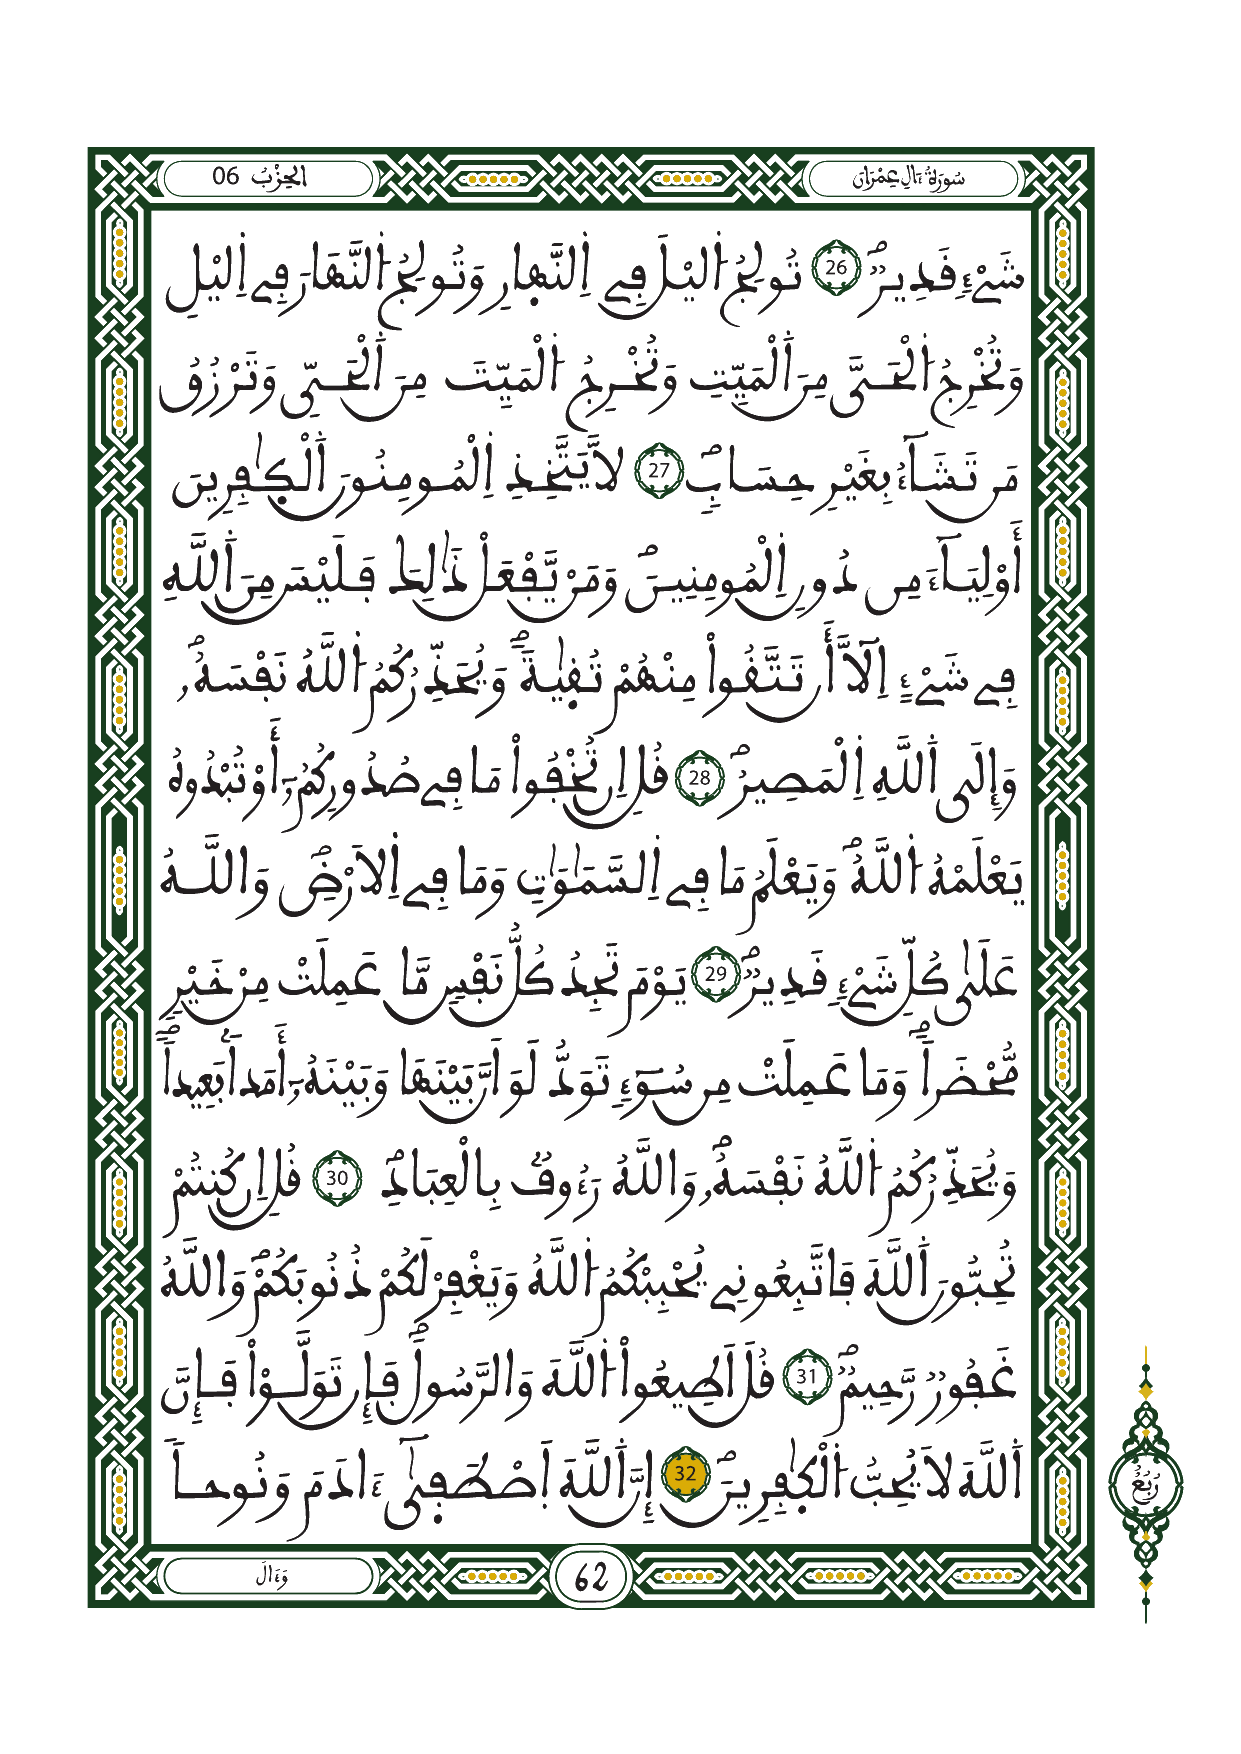 سُورَةُ ءَالِ عِمْرَانَ
الحِزْبُ 06
شَےْءٖ قَدِيرٞۖ 26 تُولِجُ اُ۬ليْلَ فِے اِ۬لنَّه۪ارِ وَتُولِجُ اُ۬لنَّهَارَ فِے اِ۬ليْلِ
وَتُخْرِجُ اُ۬لْحَيَّ مِنَ اَ۬لْمَيِّتِ وَتُخْرِجُ اُ۬لْمَيِّتَ مِنَ اَ۬لْحَيِّ وَتَرْزُقُ
مَن تَشَآءُ بِغَيْرِ حِسَابٖۖ 27 لاَّ يَتَّخِذِ اِ۬لْمُومِنُونَ اَ۬لْكٰفِرِينَ
أَوْلِيَآءَ مِن دُونِ اِ۬لْمُومِنِينَۖ وَمَنْ يَّفْعَلْ ذَٰلِكَ فَلَيْسَ مِنَ اَ۬للَّهِ
فِے شَےْءٍ اِلَّآ أَن تَتَّقُواْ مِنْهُمْ تُق۪يٰةٗۖ وَيُحَذِّرُكُمُ اُ۬للَّهُ نَفْسَهُۥۖ
وَإِلَى اَ۬للَّهِ اِ۬لْمَصِيرُۖ 28 قُلِ اِن تُخْفُواْ مَا فِے صُدُورِكُمُۥٓ أَوْ تُبْدُوهُ
يَعْلَمْهُ اُ۬للَّهُۖ وَيَعْلَمُ مَا فِے اِ۬لسَّمَٰوَٰتِ وَمَا فِے اِ۬لَارْضِۖ وَاللَّهُ
عَلَىٰ كُلِّ شَےْءٖ قَدِيرٞۖ 29 يَوْمَ تَجِدُ كُلُّ نَفْسٖ مَّا عَمِلَتْ مِنْ خَيْرٖ
مُّحْضَراٗۖ وَمَا عَمِلَتْ مِن سُوٓءٖ تَوَدُّ لَوَ اَنَّ بَيْنَهَا وَبَيْنَهُۥٓ أَمَداَۢ بَعِيداٗۖ
وَيُحَذِّرُكُمُ اُ۬للَّهُ نَفْسَهُۥۖ وَاللَّهُ رَءُوفُۢ بِالْعِبَادِۖ 30 قُلِ اِن كُنتُمْ
تُحِبُّونَ اَ۬للَّهَ فَاتَّبِعُونِے يُحْبِبْكُمُ اُ۬للَّهُ وَيَغْفِرْ لَكُمْ ذُنُوبَكُمْۖ وَاللَّهُ
غَفُورٞ رَّحِيمٞۖ 31 قُلَ اَطِيعُواْ اُ۬للَّهَ وَالرَّسُولَۖ فَإِن تَوَلَّوْاْ فَإِنَّ
اَ۬للَّهَ لَا يُحِبُّ اُ۬لْكٰ۪فِرِينَۖ 32 إِنَّ اَ۬للَّهَ اَ۪صْطَف۪ىٰٓ ءَادَمَ وَنُوحاٗ
رُبُعُ
62
وَءَالَ